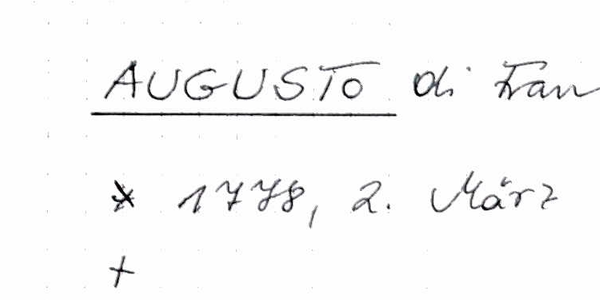 AUGUSTO di Fran
* 1778, 2. März
+